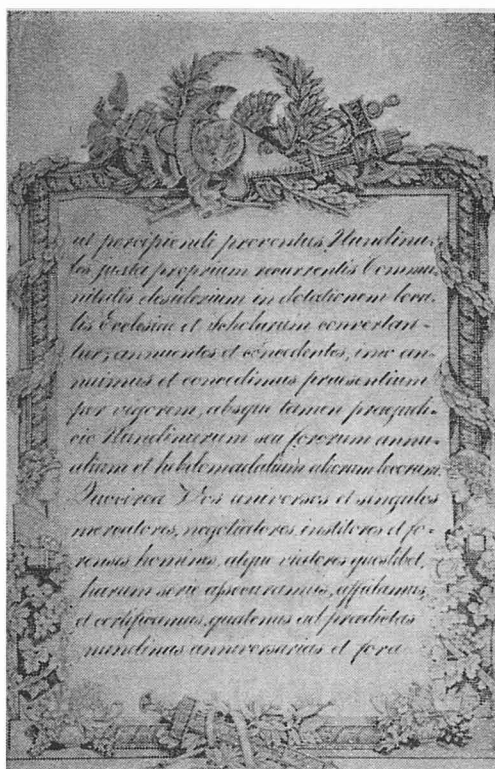 ut percipiendi proventus Nundina-
les juxta proprium recurrentis Commu-
nitatis desiderium in dotationem loca-
lis Ecclesiae et Scholarum convertan-
tur; annuentes et concedentes, imo an-
nuimus et concedimus praesentium
per vigorem, absque tamen praejudi-
cio Nundinarum seu fororum annu-
alium et hebdomadalium aliorum locorum.
Quocirca Vos universos et singulos
mercatores, negotiatores, institores et fo-
renses homines, atque viatores quoslibet,
harum serie assecuramus, affidamus,
et certificamus, quatenus ad praedictas
nundinas anniversarias et fora